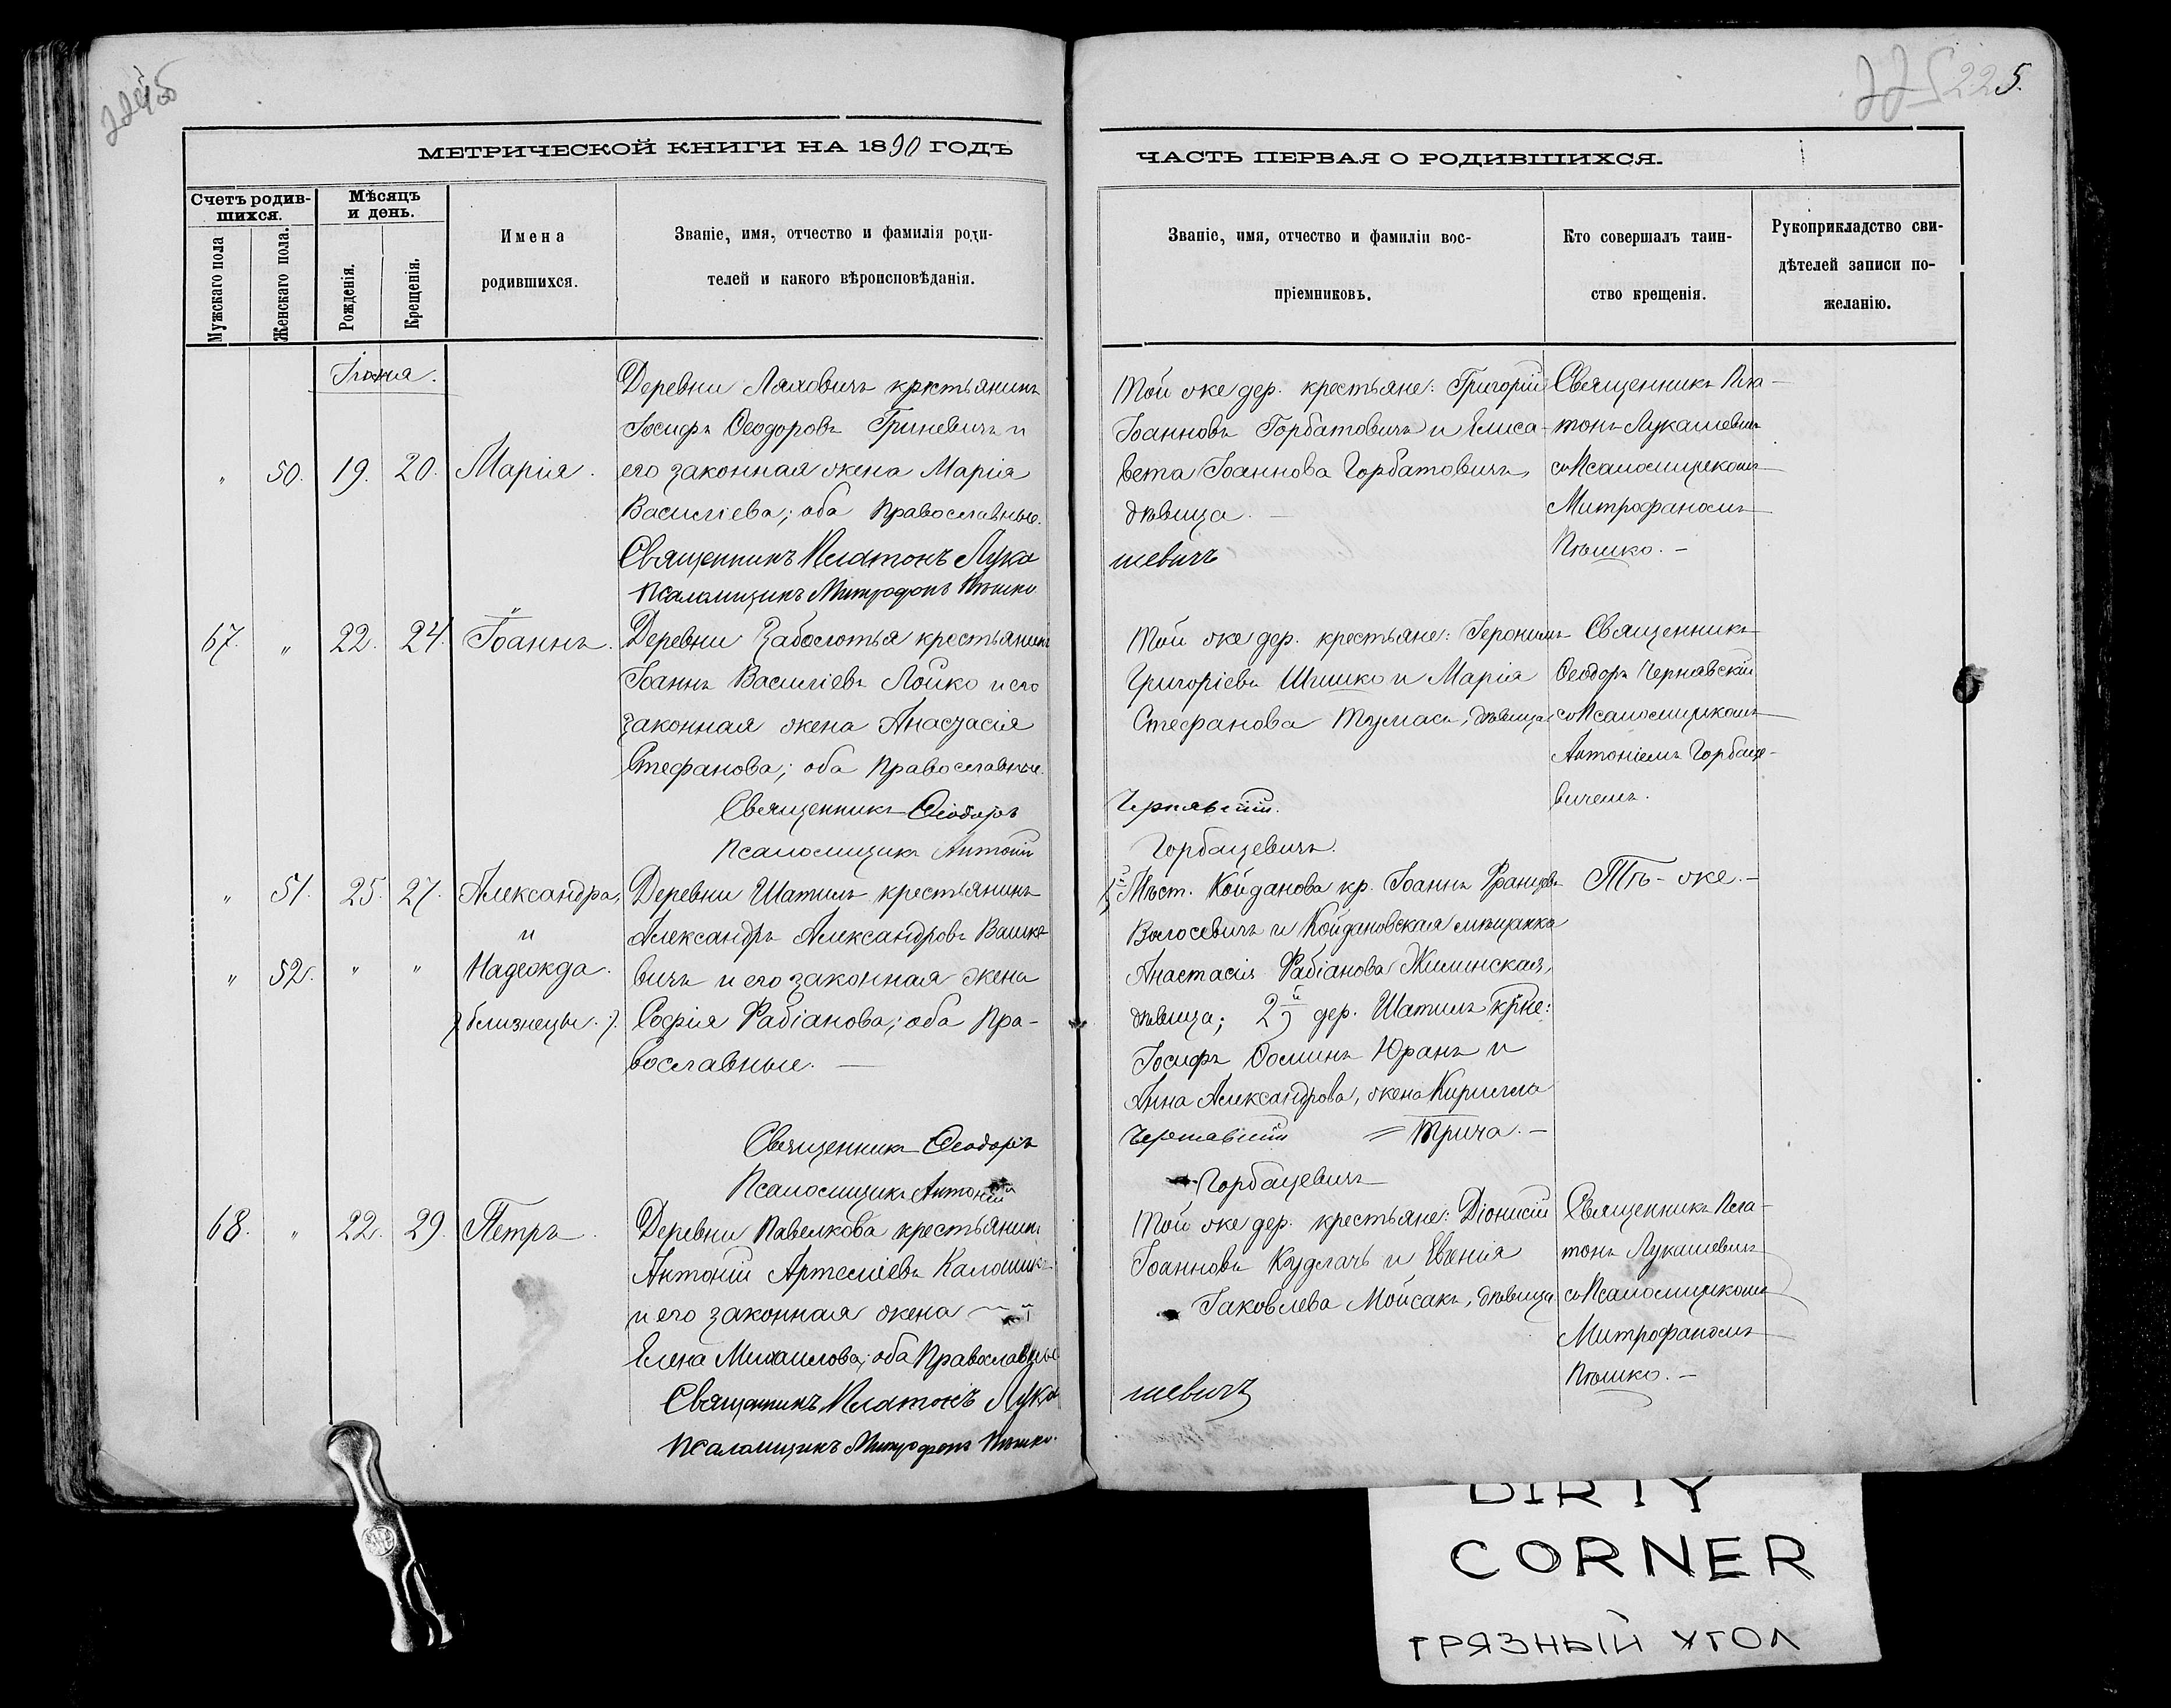 225 225.
МЕТРИЧЕСКОЙ КНИГИ НА 1890 ГОДЪ
Счетъ родив-
шихся.
Мужскаго пола
Женскаго пола.
Мѣсяцъ
и день.
Рожденія.
Крещенія.
Имена
родившихся.
Званіе, имя, отчество и фамилія роди-
телей и какого вѣроисповѣданія.
Іюня.
Деревни Ляховичъ крстьянинъ
Іосифъ Ѳеодоровъ Гриневичъ и
" 50. 19. 20. Марія. его законная жена Марія
Василіева; оба Православные.
Священникъ Платонъ Лука
Псаломщикъ Митрофанъ Пѣшко
67. " 22. 24. Іоаннъ. Деревни Заболотья крестьянинъ
Іоаннъ Василіевъ Лойко и его
законная жена Анастасія
Стефанова; оба Православные.
Священникъ Ѳеодоръ
Псаломщикъ Антоній
" 51. 25. 27. Александра, Деревни Шатилъ крестьянинъ
и Александръ Александровъ Вашке-
" 52. " " Надежда. вичъ и его законная жена
близнецы. Софія Фабіанова; оба Пра-
вославные. —
Священникъ Ѳеодоръ
Псаломщикъ Антоній
68. " 22. 29. Петръ. Деревни Павелкова крестьянинъ
Антоній Артеміевъ Калошикъ
и его законная жена
Елена Михаилова; оба Православные
Священникъ Платонъ Лука
Псаломщикъ Митрофанъ Пѣшко.
ЧАСТЬ ПЕРВАЯ О РОДИВШИХСЯ.
Званіе, имя, отчество и фамиліи вос-
пріемниковъ.
Кто совершалъ таин-
ство крещенія.
Рукоприкладство сви-
дѣтелей записи по-
желанію.
Той же дер. крестьяне: Григорій Священникъ Пла-
Іоанновъ Горбатовичъ и Елиса- тонъ Лукашевичъ
вета Іоаннова Горбатовичъ, съ Псаломщикомъ
дѣвица. — Митрофаномъ
шевичъ Пѣшко. —
Той же дер. крестьяне: Іеронимъ Священникъ
Григоріевъ Шишко и Марія Ѳеодоръ Чернявскій
Стефанова Тумасъ, дѣвица съ Псаломщикомъ
Антоніемъ Горбаце-
Чернявскій. вичемъ.
Горбацевичъ.
1й Мѣст. Койданова кр. Іоаннъ Францовъ Тѣ-же. —
Волосевичъ и Койдановская мѣщанка
Анастасія Фабіанова Жилинская,
дѣвица; 2й дер. Шатилъ кр̃не:
Іосифъ Ѳоминъ Юранъ и
Анна Александрова, жена Кирилла
Чернявскій = Трича. —
Горбацевичъ
Той же дер. крестьяне: Діонисій Священникъ Пла-
Іоанновъ Кудлачъ и Евгенія тонъ Лукашевичъ
Іаковлева Мойсакъ, дѣвица съ Псаломщикомъ
Митрофаномъ
шевичъ Пѣшко. —
DIRTY
CORNER
ГРЯЗНЫЙ УГОЛ